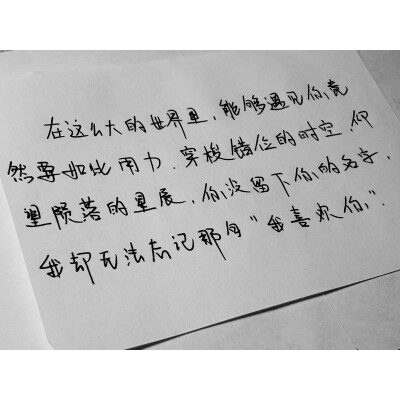 在这么大的世界里，能够遇见你，竟
然要如此用力．穿梭错位的时空．仰
望陨落的星辰．你没留下你的名字，
我却无法忘记那句“我喜欢你”．